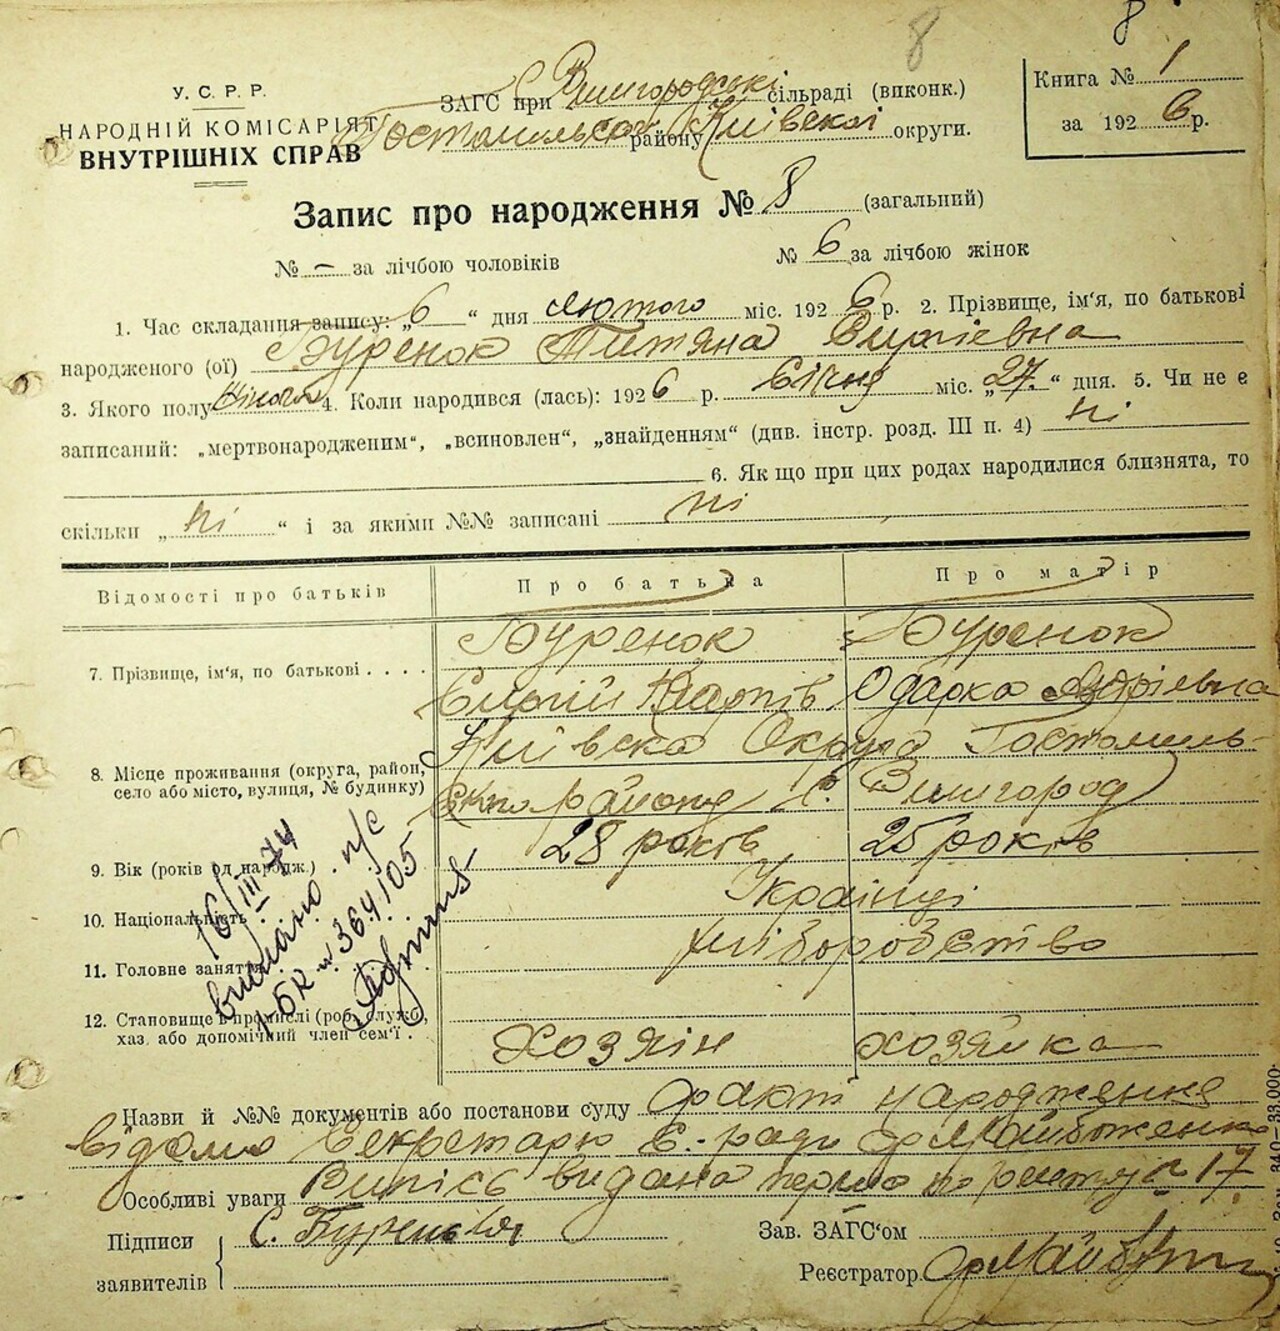 8 8
У. С. Р. Р.
НАРОДНІЙ КОМІСАРІЯТ
ВНУТРІШНІХ СПРАВ
ЗАГС при Вишгородські сільраді (виконк.)
Гостомильскои району Київскої округи.
Книга № 1
за 1926 р.
Запис про народження № 8 (загальний)
№ – за лічбою чоловіків № 6 за лічбою жінок
1. Час складання запису: „6“ дня лютого міс. 1926 р. 2. Прізвище, ім'я, по батькові
народженого (ої) Буренок Титяна Сиргіевна
3. Якого полу жіночого 4. Коли народився (лась): 1926 р. Січня міс. „27.“ дня. 5. Чи не є
записаний: „мертвонародженим“, „всиновлен“, „знайденням“ (див. інстр. розд. III п. 4) ні
6. Як що при цих родах народилися близнята, то
скільки „ні“ і за якими №№ записані ні
Відомості про батьків Про батька Про матір
7. Прізвище, ім'я, по батькові . . . . Буренок Буренок
Сиргій Карпів Одарка Андріевна
8. Місце проживання (округа, район, село або місто, вулиця, № будинку) Київска Округа Гостомиль-
ского району С. Вишгород
9. Вік (років од народж.) 28 років 25 років
10. Національність Українці
11. Головне заняття хліборобство
12. Становище в промислі (роб., служб., хаз. або допомічний член сем'ї . Хозяін хозяйка
16/III 74
видано п/с
1-БК № 364105
Назви й №№ документів або постанови суду факт народження
відомо Секретарю С. ради Майбоженко
Особливі уваги Випісь видана перша по реєстру № 17
Підписи заявителів С. Буреньк
Зав. ЗАГС'ом
Реєстратор